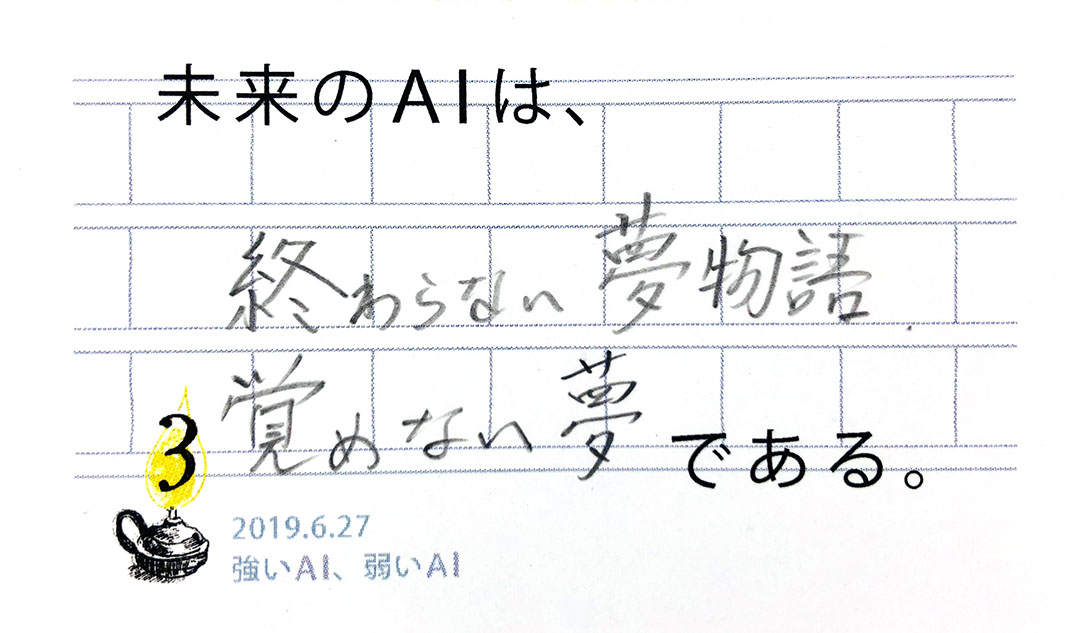 未来のAIは、
終わらない夢物語
覚めない夢である。
3
2019.6.27
強いAI、弱いAI